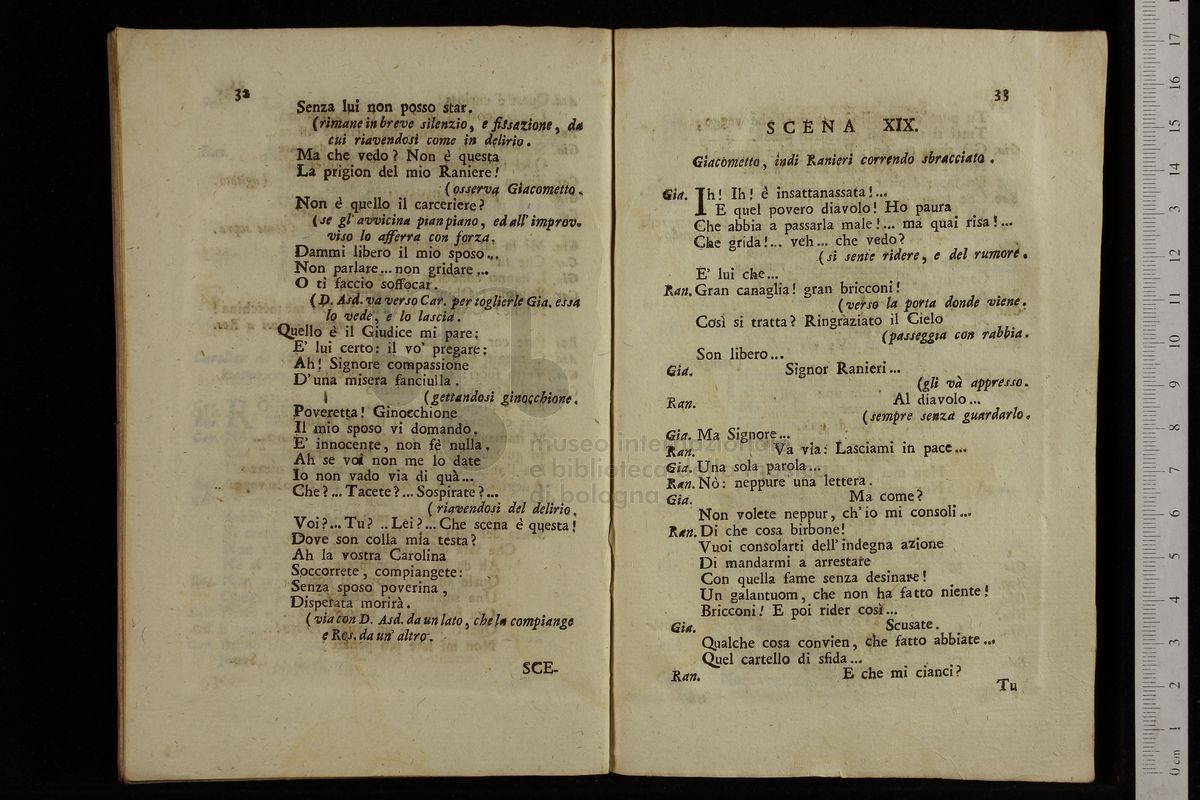 32
Senza lui non posso star.
(rimane in breve silenzio, e fissazione, da
cui riavendosi come in delirio.
Ma che vedo? Non è questa
La prigion del mio Raniere!
(osserva Giacometto.
Non è quello il carceriere?
(se gl' avvicina pian piano, ed all' improv-
viso lo afferra con forza.
Dammi libero il mio sposo...
Non parlare... non gridare...
O ti faccio soffocar.
(D. Asd. va verso Car. per toglierle Gia. essa
lo vede, e lo lascia.
Quello è il Giudice mi pare;
E' lui certo: il vo' pregare;
Ah! Signore compassione
D'una misera fanciulla.
(gettandosi ginocchione.
Poveretta! Ginocchione
Il mio sposo vi domando.
E' innocente, non fè nulla.
Ah se voi non me lo date
Io non vado via di quà...
Che?... Tacete?... Sospirate?...
(riavendosi del delirio.
Voi?... Tu? .. Lei?... Che scena è questa!
Dove son colla mia testa?
Ah la vostra Carolina
Soccorrete, compiangete:
Senza sposo poverina,
Disperata morirà.
(via con D. Asd. da un lato, che la compiange
e Ros. da un' altro.
SCE-
33
SCENA XIX.
Giacometto, indi Ranieri correndo sbracciato.
Gia. Ih! Ih! è insattanassata!...
E quel povero diavolo! Ho paura
Che abbia a passarla male!... ma quai risa!...
Che grida!... veh... che vedo?
(si sente ridere, e del rumore.
E' lui che...
Ran. Gran canaglia! gran bricconi!
(verso la porta donde viene.
Così si tratta? Ringraziato il Cielo
(passeggia con rabbia.
Son libero...
Gia. Signor Ranieri...
(gli và appresso.
Ran. Al diavolo...
(sempre senza guardarlo.
Gia. Ma Signore...
Ran. Va via: Lasciami in pace...
Gia. Una sola parola...
Ran. Nò: neppure una lettera.
Gia. Ma come?
Non volete neppur, ch' io mi consoli...
Ran. Di che cosa birbone!
Vuoi consolarti dell' indegna azione
Di mandarmi a arrestare
Con quella fame senza desinare!
Un galantuom, che non ha fatto niente!
Bricconi! E poi rider così...
Gia. Scusate.
Qualche cosa convien, che fatto abbiate...
Quel cartello di sfida...
Ran. E che mi cianci?
Tu
museo internazionale
e biblioteca della musica
di bologna